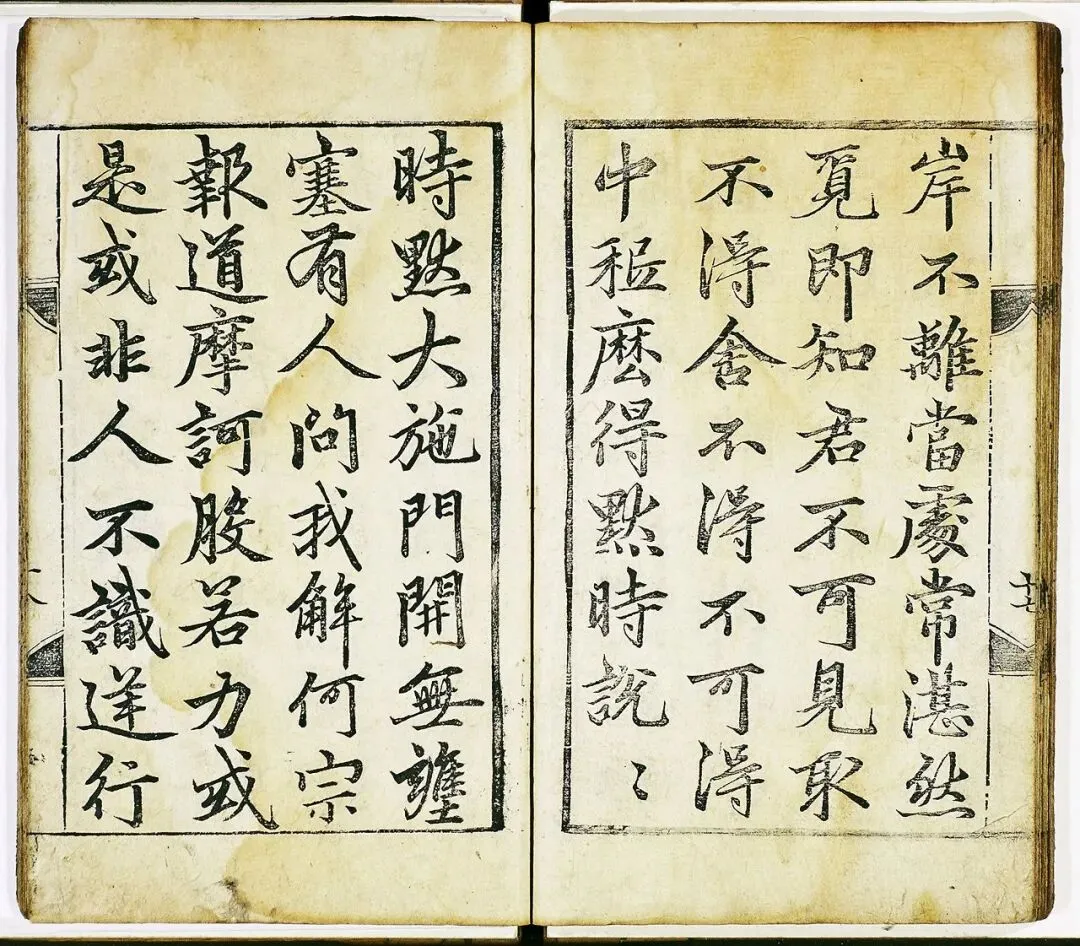 十七
岸不離當處常湛然
覓即知君不可見取
不得舍不得不可得
中秖麽得黙時說〻
時黙大施門開無壅
塞有人問我解何宗
報道摩訶般若力或
是或非人不識逆行